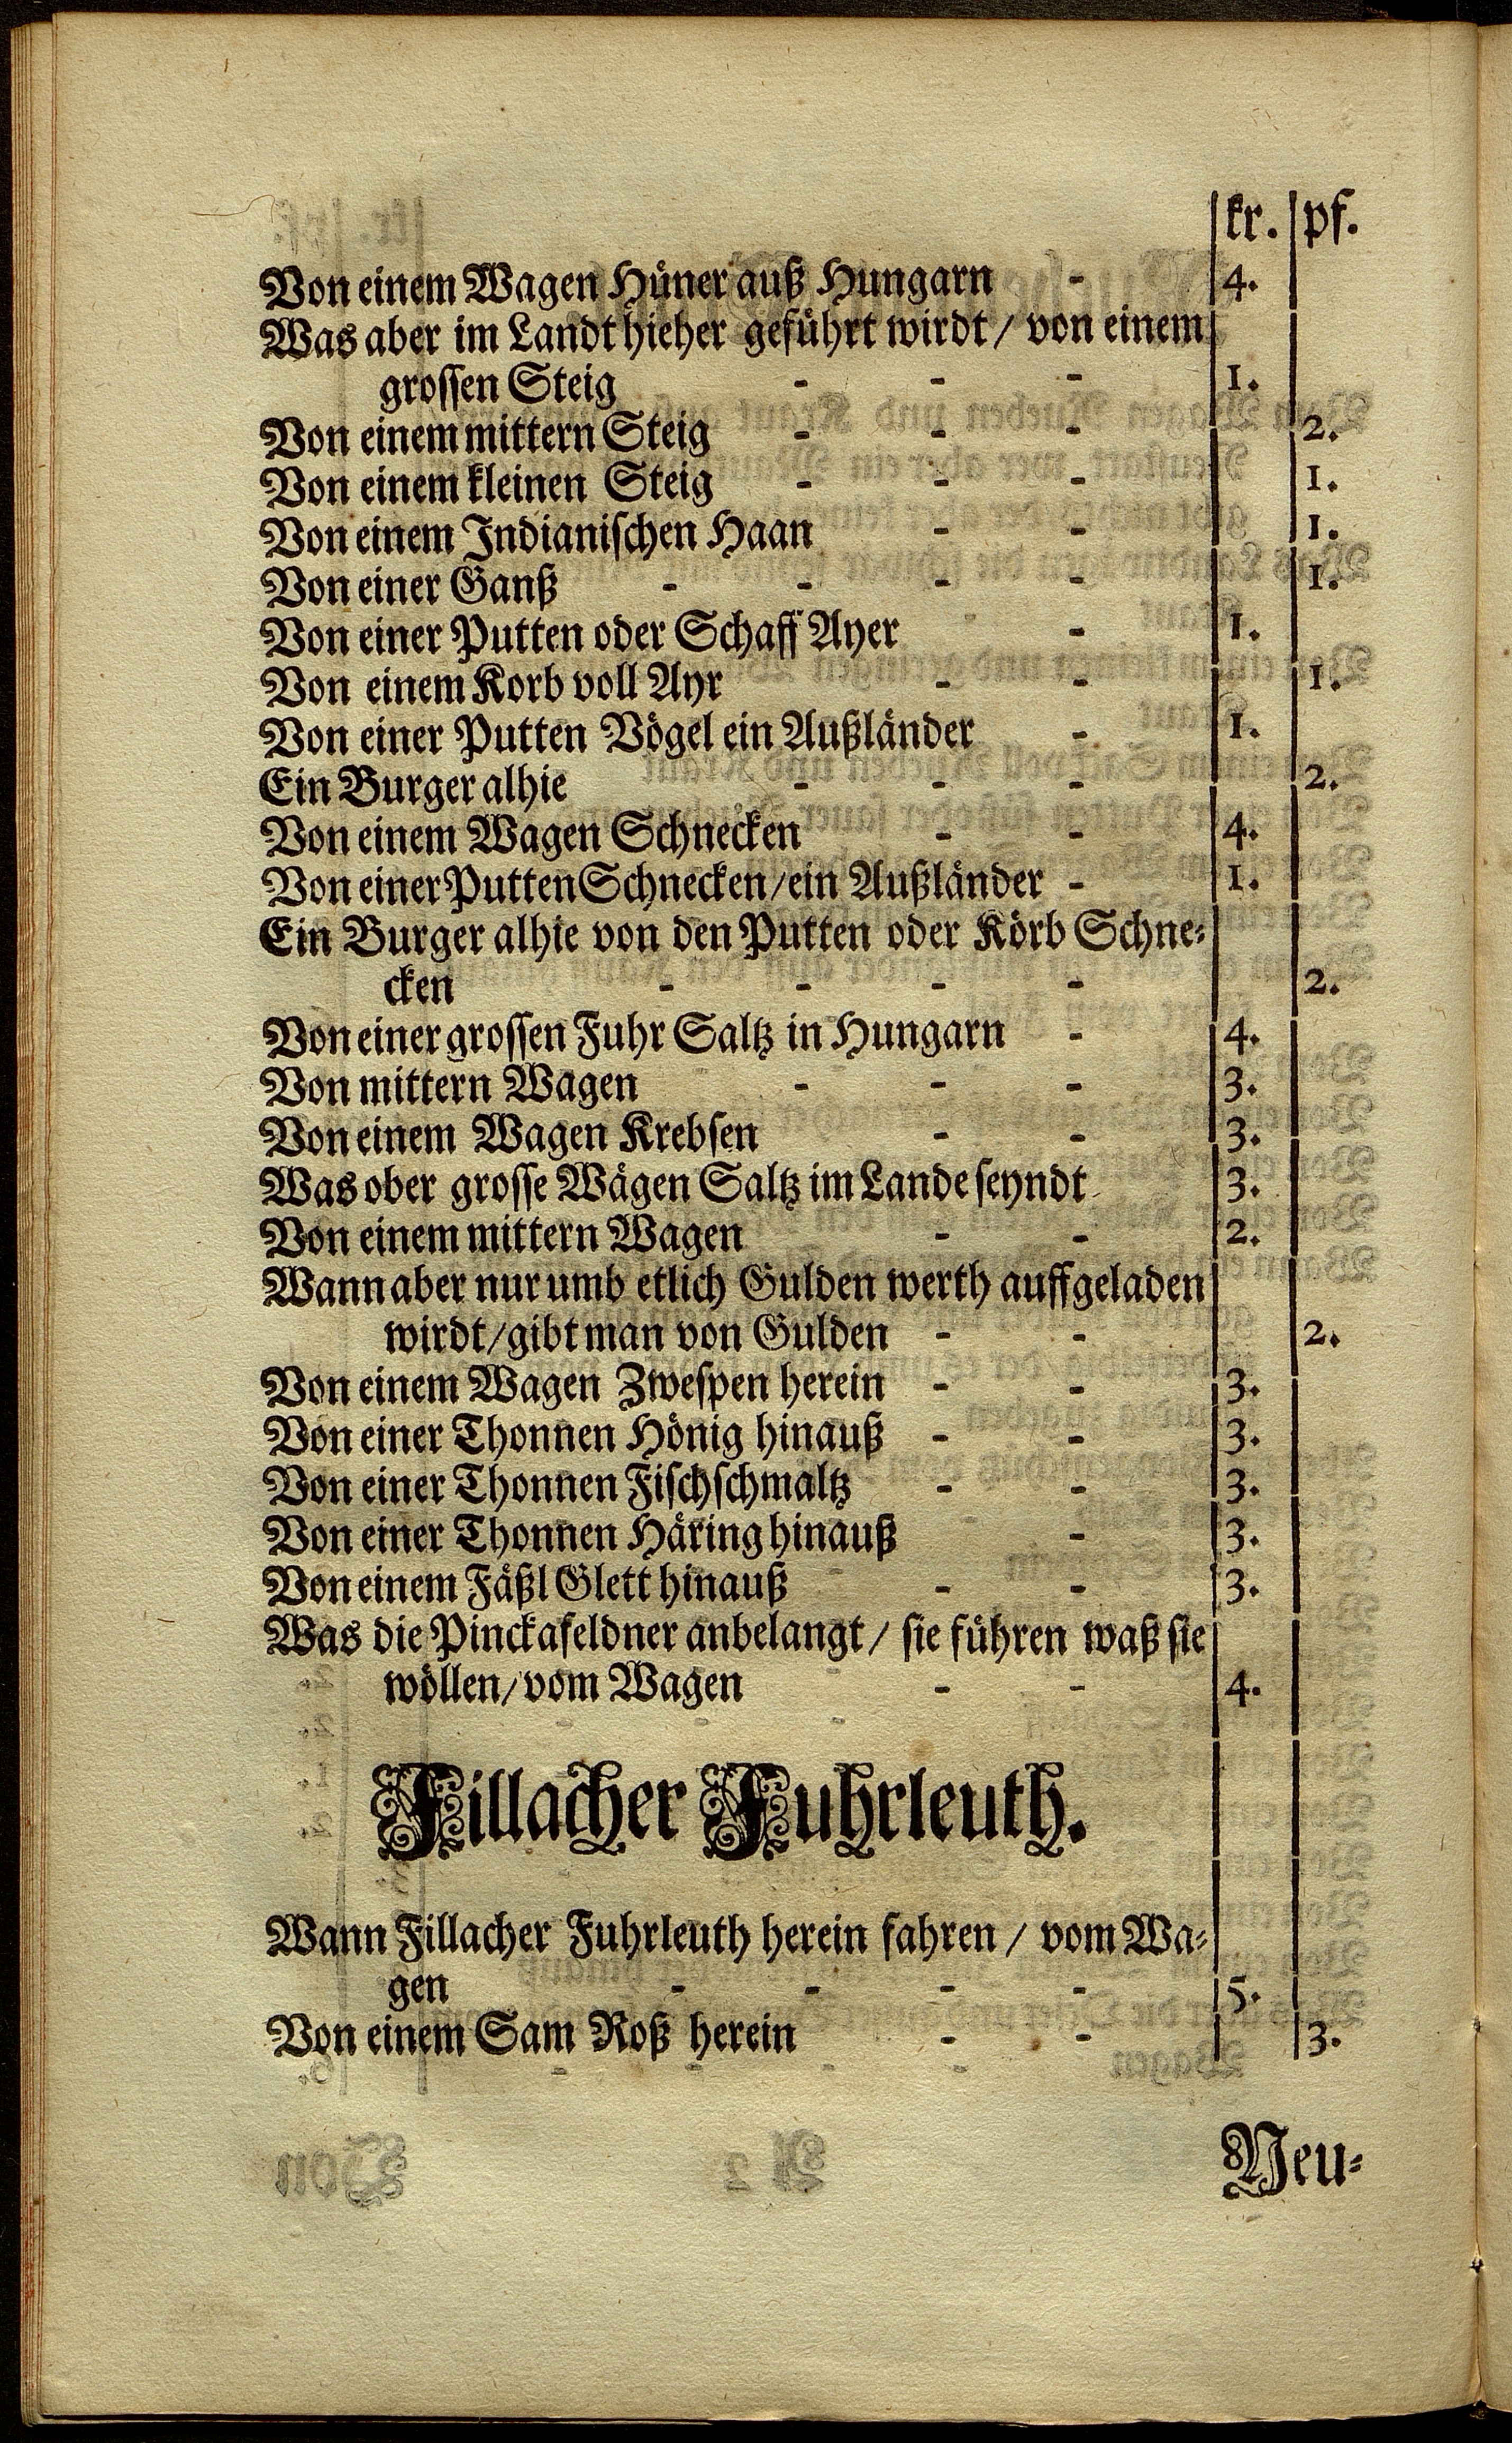 kr. pf.
Von einem Wagen Hüner auß Hungarn - 4.
Was aber im Landt hieher geführt wirdt / von einem
grossen Steig - - - 1.
Von einem mittern Steig - - - 2.
Von einem kleinen Steig - - - 1.
Von einem Indianischen Haan - - 1.
Von einer Ganß - - - - 1.
Von einer Putten oder Schaff Ayer - 1.
Von einem Korb voll Ayr - - 1.
Von einer Putten Vögel ein Außländer - 1.
Ein Burger alhie - - - 2.
Von einem Wagen Schnecken - - 4.
Von einer Putten Schnecken / ein Außländer - 1.
Ein Burger alhie von den Putten oder Körb Schne-
cken - - - - 2.
Von einer grossen Fuhr Saltz in Hungarn - 4.
Von mittern Wagen - - - 3.
Von einem Wagen Krebsen - - 3.
Was ober grosse Wägen Saltz im Lande seyndt 3.
Von einem mittern Wagen - - 2.
Wann aber nur umb etlich Gulden werth auffgeladen
wirdt / gibt man von Gulden - - 2.
Von einem Wagen Zwespen herein - - 3.
Von einer Thonnen Hönig hinauß - - 3.
Von einer Thonnen Fischschmaltz - - 3.
Von einer Thonnen Häring hinauß - 3.
Von einem Fäßl Glett hinauß - - 3.
Was die Pinckafeldner anbelangt / sie führen waß sie
wöllen / vom Wagen - - 4.
Fillacher Fuhrleuth.
Wann Fillacher Fuhrleuth herein fahren / vom Wa-
gen - - - - 5.
Von einem Sam Roß herein - - 3.
Neu-